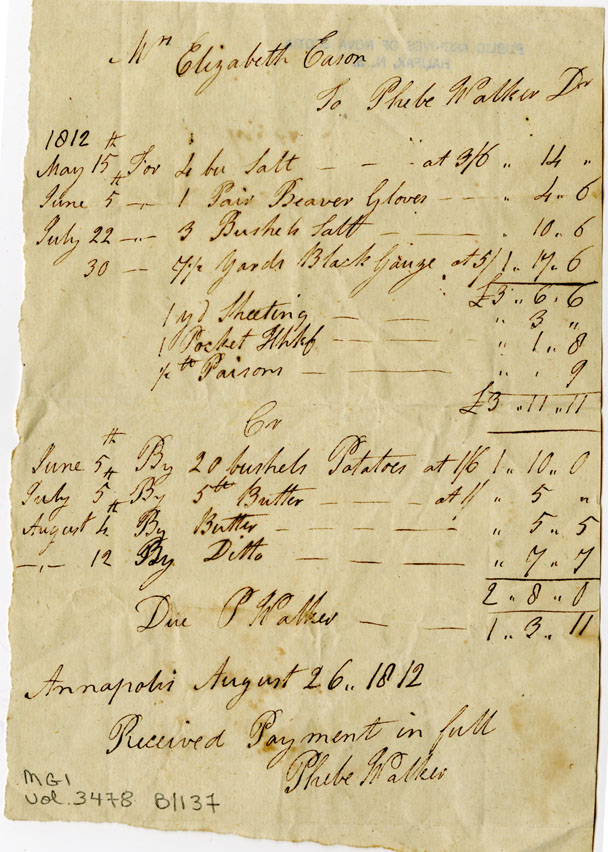 PUBLIC ARCHIVES OF NOVA SCOTIA
HALIFAX, N. S.
Mrs Elizabeth Eason
To Phebe Walker Dr
1812
May 15th For 4 bu Salt - - - at 3/6 " 14 "
June 5th -"- 1 Pair Beaver Gloves - - - " 4 " 6
July 22 -"- 3 Bushels Salt - - - " 10 " 6
30 - 7 1/2 Yards Black Gauze at 5/ 1 " 17 " 6
£3 " 6 " 6
1 yd Sheeting - - - " 3 "
1 Pocket Hhkf - - - " 1 " 8
1/2 lb Raisons - - - " " 9
£3 " 11 " 11
Cr
June 5th By 20 bushels Potatoes at 1/6 1 " 10 " 0
July 5th By 5 lb Butter - - - at 1/ " 5 "
August 4th By Butter - - - - " 5 " 5
-"- 12 By Ditto - - - - " 7 " 7
2 " 8 " 0
Due P Walker - - - 1 " 3 " 11
Annapolis August 26 " 1812
Received Payment in full
Phebe Walker
MG1
vol. 3478 B/137